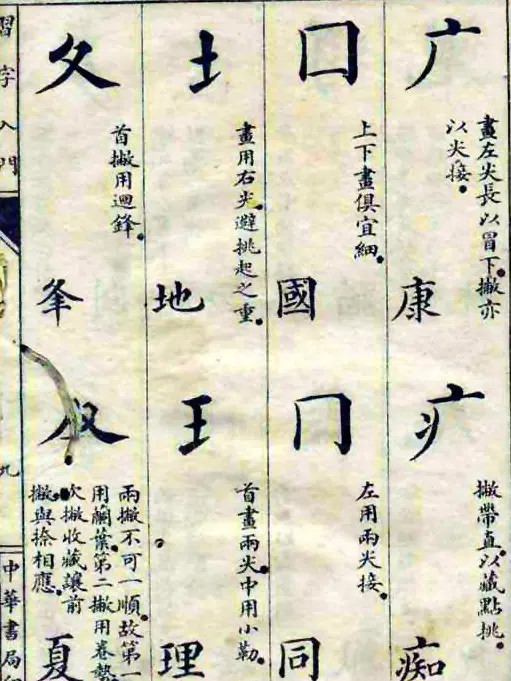 广
畫左尖長以冒下。撇亦
以尖接。
康
疒
撇帶直。以藏點挑。
痴
囗
上下畫俱宜細。
國
冂
左用兩尖接。
同
土
畫用右尖。避挑起之重。
地
王
首畫兩尖。中用小勒。
理
夂
首撇用迴鋒。
夆
兩撇不可一順。故第一
用蘭葉。第二撇用卷勢。
次撇收藏讓前
撇與捺相應。
夏
習字入門
九
中華書局